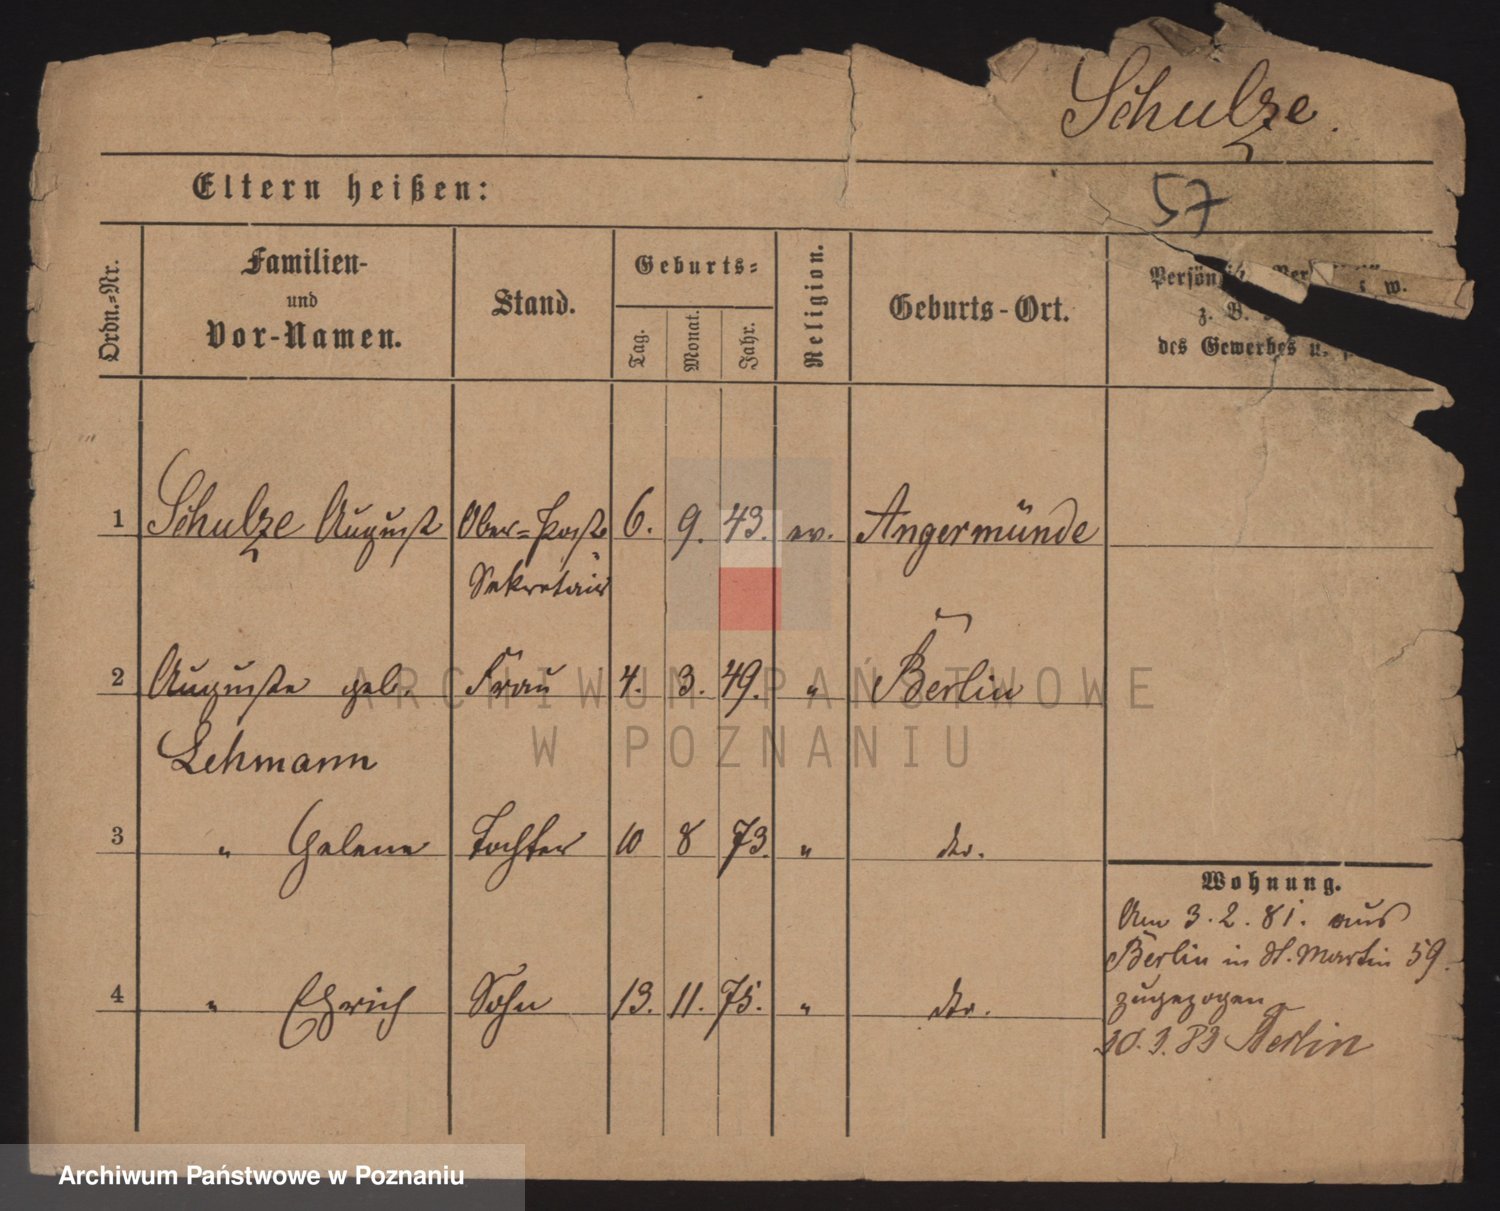 Schulze.
Eltern heißen:
57
Ordn.-Nr.
Familien-
und
Vor-Namen.
Stand.
Geburts-
Tag.
Monat.
Jahr.
Religion.
Geburts-Ort.
w.
z. B.
des Gewerbes u.
1 Schulze August Ober-Post- 6. 9. 43. ev. Angermünde
Sekretair
2 Auguste geb. Frau 4. 3. 49. " Berlin
Lehmann
3 " Helene Tochter 10 8 73. " do.
4 " Sohn 13. 11. 75. " do.
Wohnung.
Am 3.2.81. aus
Berlin in St. Martin 59.
zugezogen
Berlin
ARCHIWUM PAŃSTWOWE
W POZNANIU
Archiwum Państwowe w Poznaniu